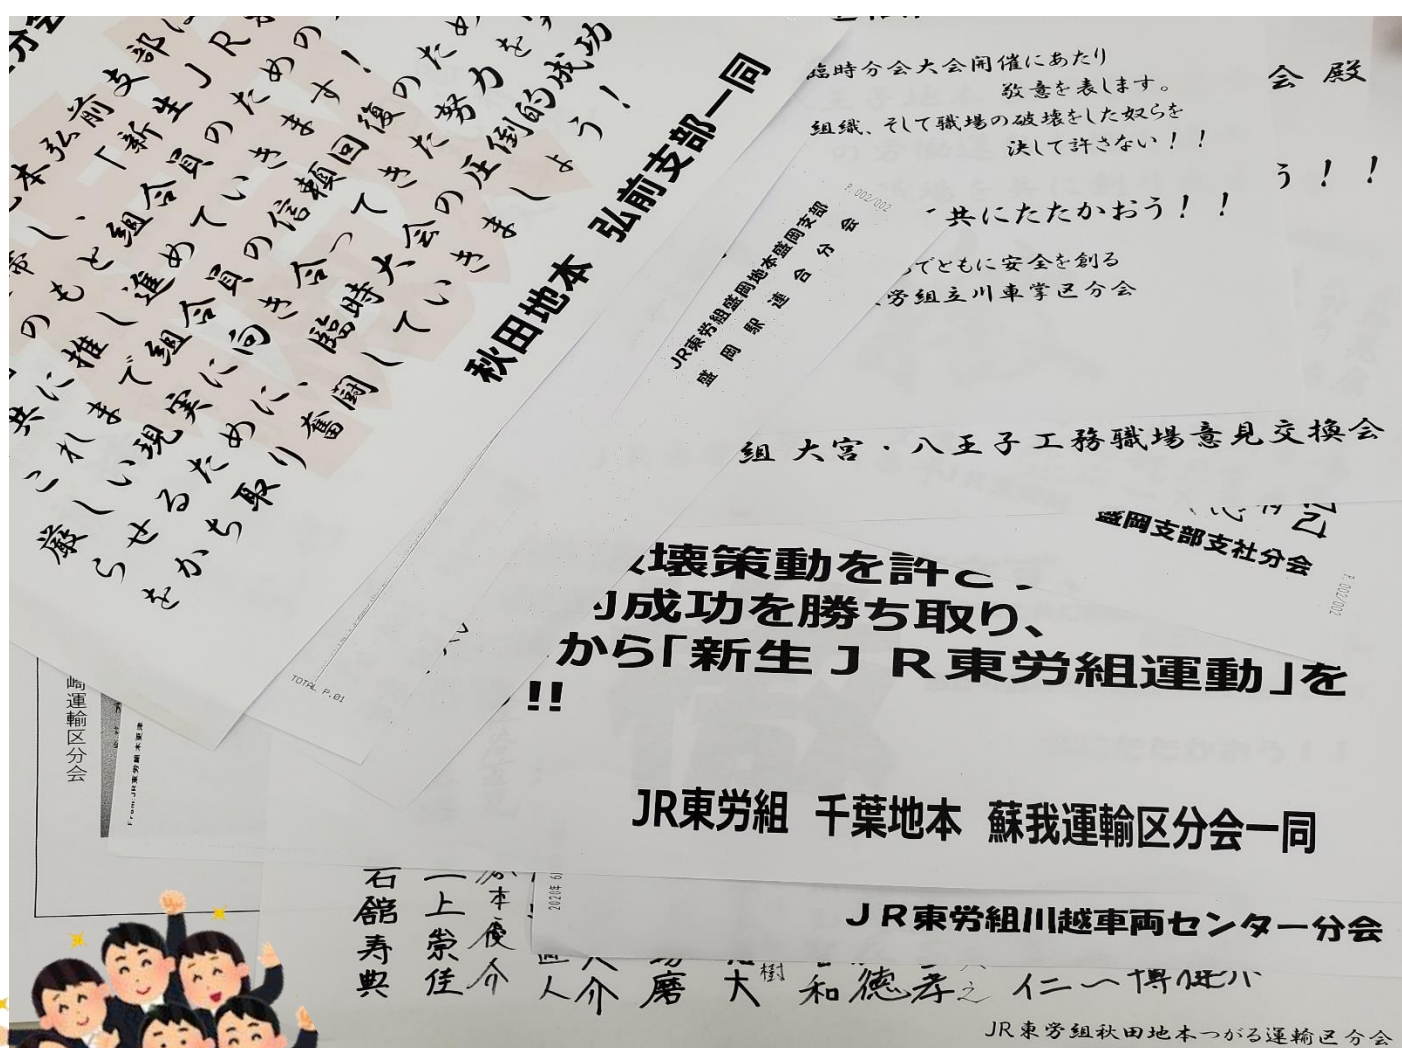 本弘前支部は
し、「新生JR
のもと組合員のための
共に推し進めていきます！
これまで組合員の信頼回復のため
厳しい現実に向き合ってきた努力を
らせるために、臨時大会の圧倒的成功
をかち取り奮闘していきましょう！
秋田地本 弘前支部一同
臨時分会大会開催にあたり
敬意を表します。
組織、そして職場の破壊をした奴らを
決して許さない！！
共にたたかおう！！
でともに安全を創る
労組立川車掌区分会
会殿
う！！
P.002/002
JR東労組盛岡地本盛岡支部
盛岡駅連合分会
組 大宮・八王子工務職場意見交換会
盛岡支部支社分会
P.002/002
壊策動を許さ
成功を勝ち取り、
から「新生ＪＲ東労組運動」を
!!
JR東労組 千葉地本 蘇我運輸区分会一同
TOTAL P.01
崎運輸区分会
From:JR東労組木更津
2020年 6
ＪＲ東労組川越車両センター分会
石舘寿典
二上崇佳
本優介
直人
大介
磨
大
樹
和
徳
孝
之
仁一
博
健
JR東労組秋田地本つがる運輸区分会